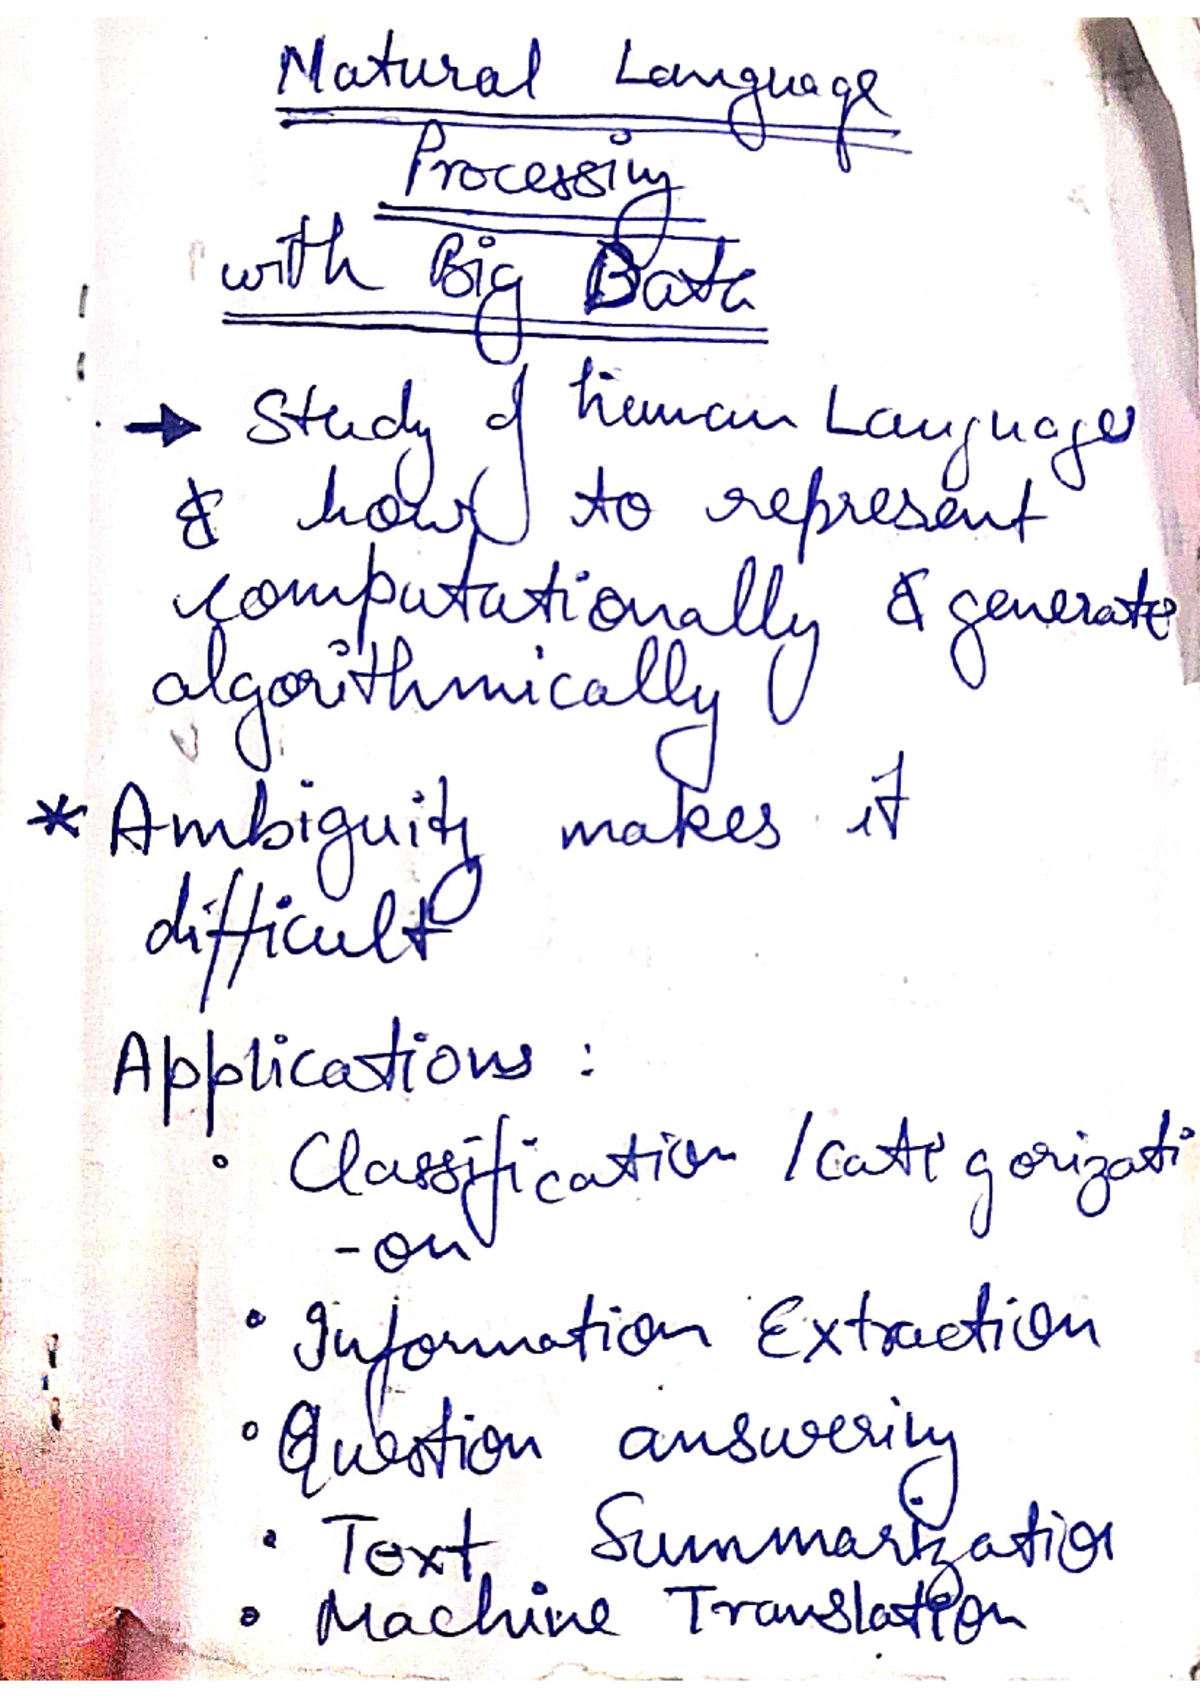 Natural Language
Processing
with Big Data
→ Study of human Languages
& how to represent
computationally & generate
algorithmically
* Ambiguity makes it
difficult
Applications :
• Classification / Categorizati
-on
• Information Extraction
• Question answering
• Text Summarization
• Machine Translation